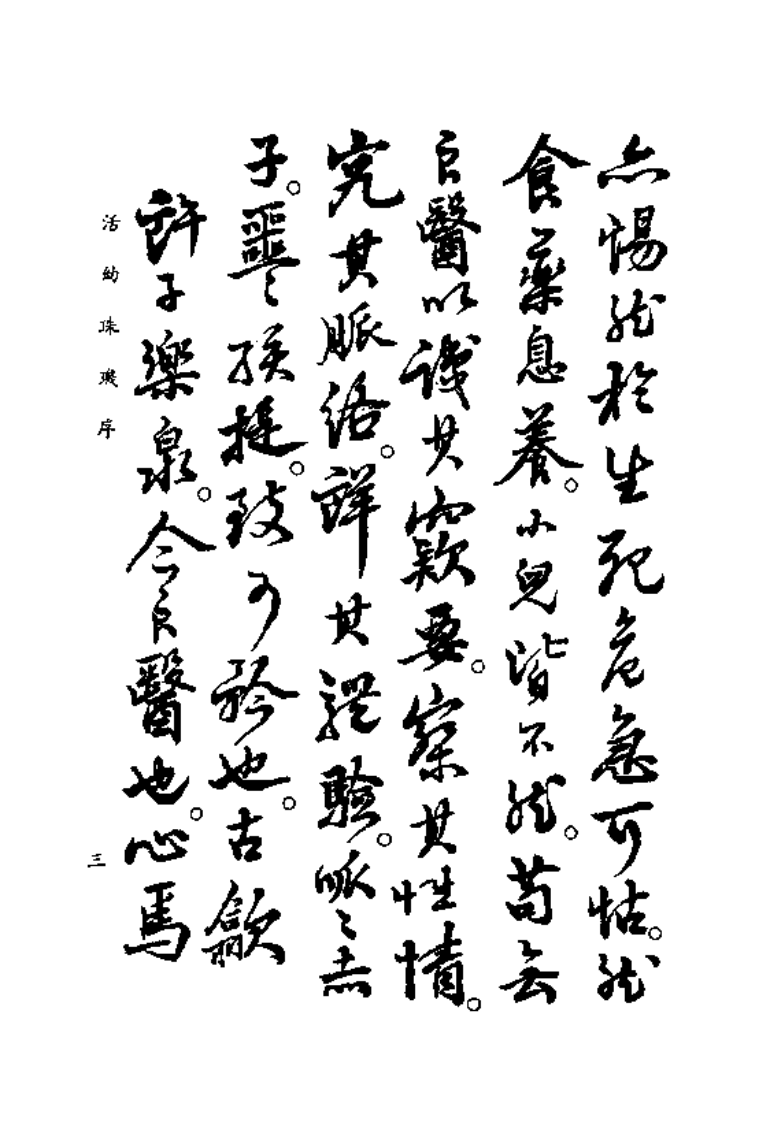 亦惕然於生死危急可怙。然
食藥息養。小兒皆不然。苟無
良醫以識其窾要。察其性情。
究其脈絡。詳其證驗。呱〻赤
子。噩〻孩提。致可矜也。古歙
許子樂泉。今良醫也。心焉
活幼珠璣序
三